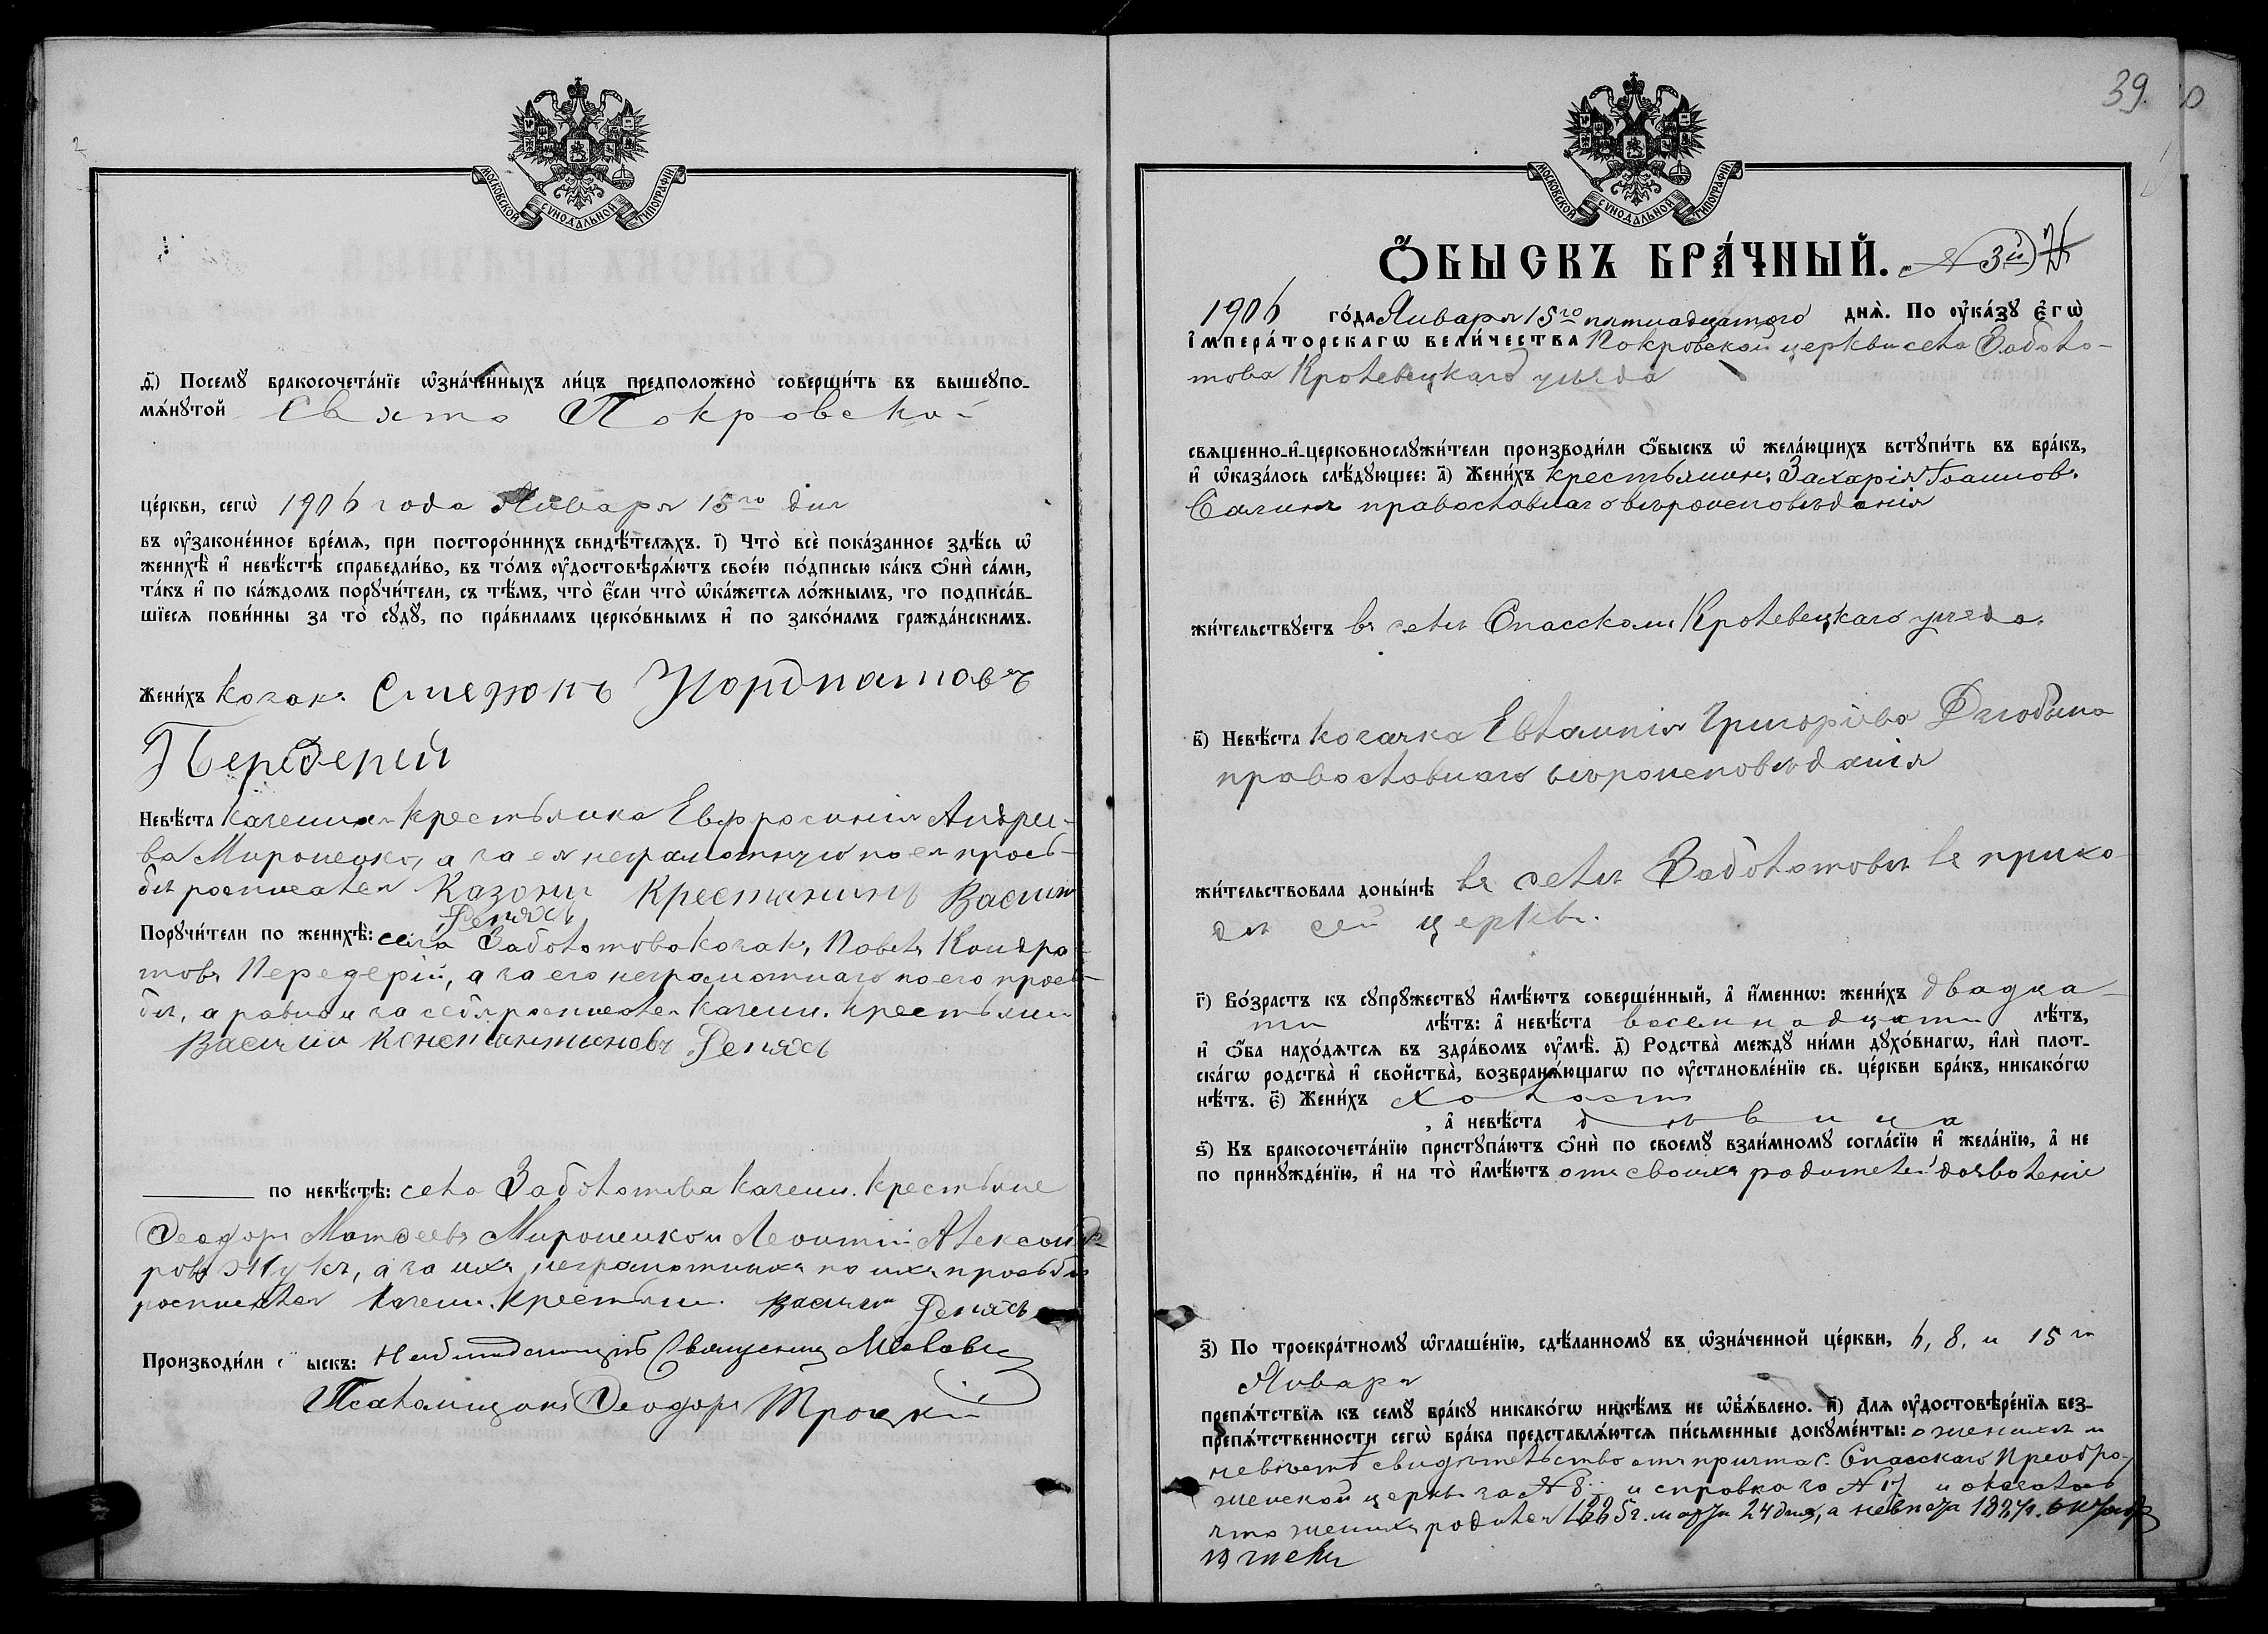 МОСКОВСКОЙ СѴНОДАЛЬНОЙ ТИПОГРАФІИ
д҃) Посемꙋ бракосочета́нїе ѡ҆зна́ченныхъ ли́цъ предположено̀ соверши́ть въ вышеупо-
мѧ́нꙋтой Свято Покровской
це́ркви, сегѡ̀ 1906 года Января 15го дня
въ ᲂу҆законе́нное вре́мѧ, при посторо́ннихъ свидѣ́телѧхъ. і҃) Что̀ всѐ пока́занное здѣ́сь ѡ҆
женихѣ̀ и҆ невѣ́стѣ справедли́во, въ то́мъ ᲂу҆достовѣрѧ́ютъ свое́ю по́дписью ка́къ ѻ҆нѝ са́ми,
та́къ и҆ по ка́ждомъ порꙋчи́тели, съ тѣ́мъ, что̀ є҆́сли что̀ ѡ҆ка́жетсѧ ло́жнымъ, то подписа́в-
шїесѧ пови́нны за то̀ сꙋдꙋ̀, по пра́виламъ церко́внымъ и҆ по зако́намъ гражда́нскимъ.
Жени́хъ козакъ Семэюнъ
Передерей
Невѣ́ста казенная крестьянка Евфросинія Андрее-
ва Мироненко, а за ея неграмотную по ея прось-
бѣ росписался Казоный Крестянинъ Васили
Репяхъ
Порꙋчи́тели по женихѣ̀: села Заболотова козакъ Павелъ Кондра-
товъ Передерій, а за его неграмотнаго по его прось-
бѣ, а равно и за себя росписался казенн. крестьянин
Василий Константыновъ Репяхъ
по невѣ́стѣ: села Заболотова казенн. крестьяне
Ѳеодоръ Матѳеевъ Мироненко и Леонтій Александ-
ровъ Жукъ, а за ихъ неграмотныхъ по ихъ просьбѣ
росписался казенн. крестьянин Васили Репяхъ
Производи́ли ѻ҆́быскъ: Наблюдающій Священник
Псаломщикъ Ѳеодоръ Троцкій
39.
МОСКОВСКОЙ СѴНОДАЛЬНОЙ ТИПОГРАФІИ
Ѻ҆́БЫСКЪ БРА́ЧНЫЙ. № 3й
1906 го́да Января 15го пятнадцатого днѧ̀. По ᲂу҆ка́зꙋ Є҆гѡ̀
І҆мпера́торскагѡ вели́чества Покровской церкви села Заболо-
това Кролевецкаго уѣзда
свѧщенно-и҆-церковнослꙋжи́тели производи́ли ѻ҆́быскъ ѡ҆ жела́ющихъ встꙋпи́ть въ бра́къ,
и҆ ѡ҆каза́лось слѣ́дꙋющее: а҃) Жени́хъ крестьянинъ Захарія Іоанновъ
Салинъ православнаго вѣроисповѣданія
жи́тельствꙋетъ въ селѣ Спасскомъ Кролевецкаго уѣзда.
в҃) Невѣ́ста козачка Евлампія Григоріева Дзюбина
православнаго вѣроисповѣданія
жи́тельствовала доны́нѣ въ селѣ Заболотовѣ въ прихо-
дѣ сей церкви.
г҃) Во́зрастъ къ сꙋпрꙋжествꙋ и҆мѣ́ютъ соверше́нный, а҆ и҆́меннѡ: жени́хъ двадца-
ти лѣ́тъ: а҆ невѣ́ста восемнадцати лѣ́тъ,
и҆ ѻ҆́ба нахо́дѧтсѧ въ здра́вомъ ᲂу҆мѣ̀. д҃) Родства̀ междꙋ ни́ми дꙋхо́внагѡ, и҆лѝ плот-
ска́гѡ родства̀ и҆ свойства̀, возбранѧ́ющагѡ по ᲂу҆становле́нїю св. це́ркви бра́къ, никако́гѡ
нѣ́тъ. є҃) Жени́хъ холостъ
, а҆ невѣ́ста дѣвица
ѕ҃) Къ бракосочета́нїю пристꙋпа́ютъ ѻ҆нѝ по своемꙋ̀ взаи́мномꙋ согла́сїю и҆ жела́нїю, а҆ не
по принꙋжде́нїю, и҆ на то̀ и҆мѣ́ютъ отъ своихъ родителей дозволеніе
з҃) По троекра́тномꙋ ѡ҆глаше́нїю, сдѣ́ланномꙋ въ ѡ҆зна́ченной це́ркви, 6, 8, и 15го
Января
препѧ́тствїѧ къ семꙋ̀ бра́кꙋ никако́гѡ никѣ́мъ не ѡ҆б̾ѧ́влено. и҃) Длѧ ᲂу҆достовѣре́нїѧ без-
препѧ́тственности сегѡ̀ бра́ка представлѧ́ютсѧ пи́сьменные докꙋме́нты: о женихѣ и
невѣстѣ свидѣтельство отъ причта с. Спасскаго Преобра-
женской церкви за № 8 и справка за № 17 и оказалось
что женихъ родился 1885 г. марта 24 дня, а невѣста 1887 г. октября